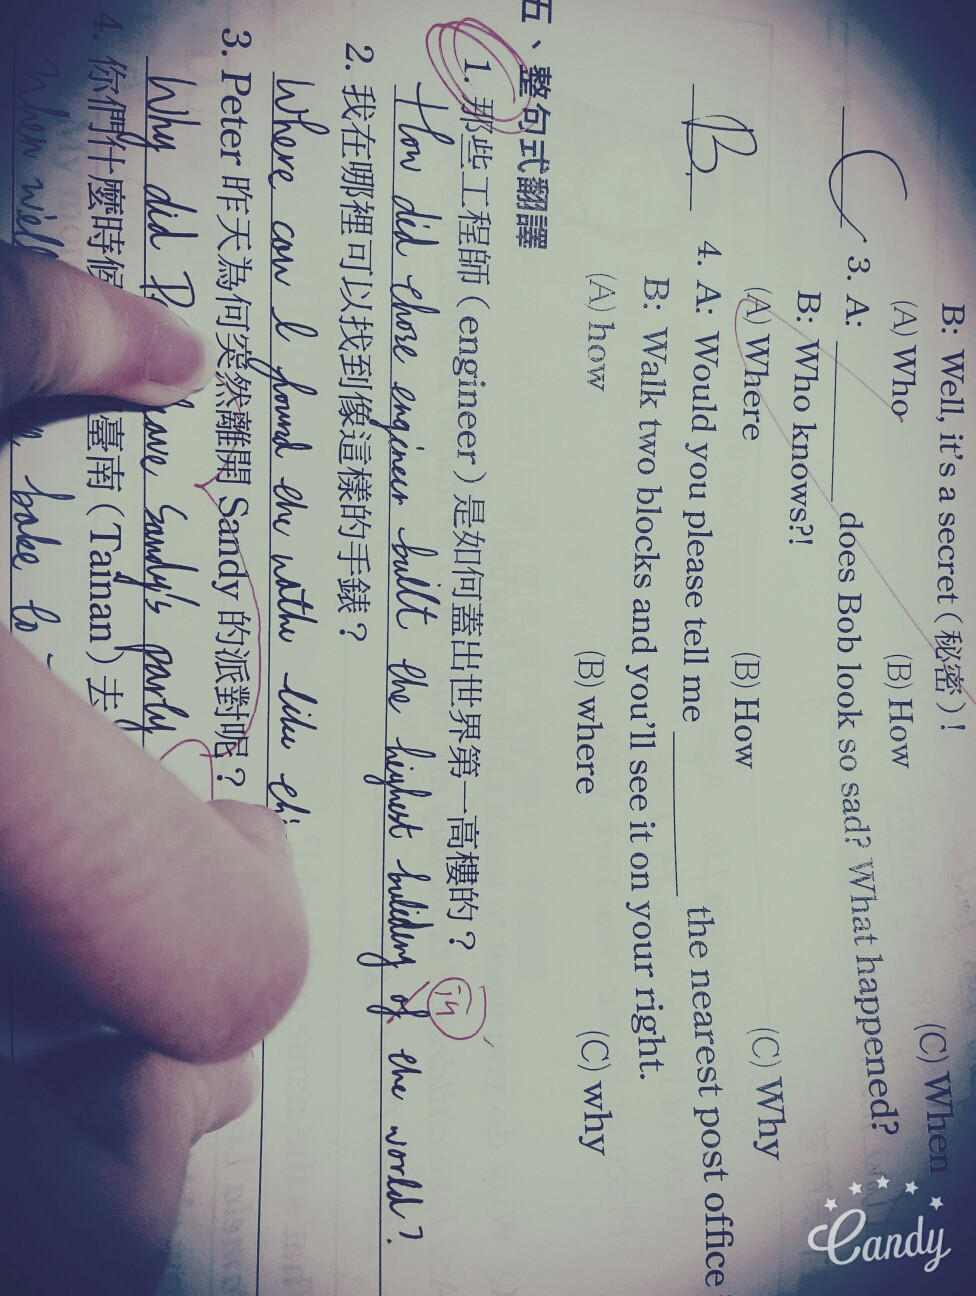 B: Well, it's a secret (秘密)!
(A) Who (B) How (C) When
C 3. A: ________ does Bob look so sad? What happened?
B: Who knows?!
(A) Where (B) How (C) Why
B 4. A: Would you please tell me ________ the nearest post office
B: Walk two blocks and you'll see it on your right.
(A) how (B) where (C) why
五、整句式翻譯
1. 那些工程師 (engineer) 是如何蓋出世界第一高樓的？
in
How did those engineer built the highest buliding of the world?
2. 我在哪裡可以找到像這樣的手錶？
Where can I found the wathe like
3. Peter 昨天為何突然離開 Sandy 的派對呢？
Why did Sandy's party
4. 你們什麼時候 臺南 (Tainan) 去
When bake to
Candy